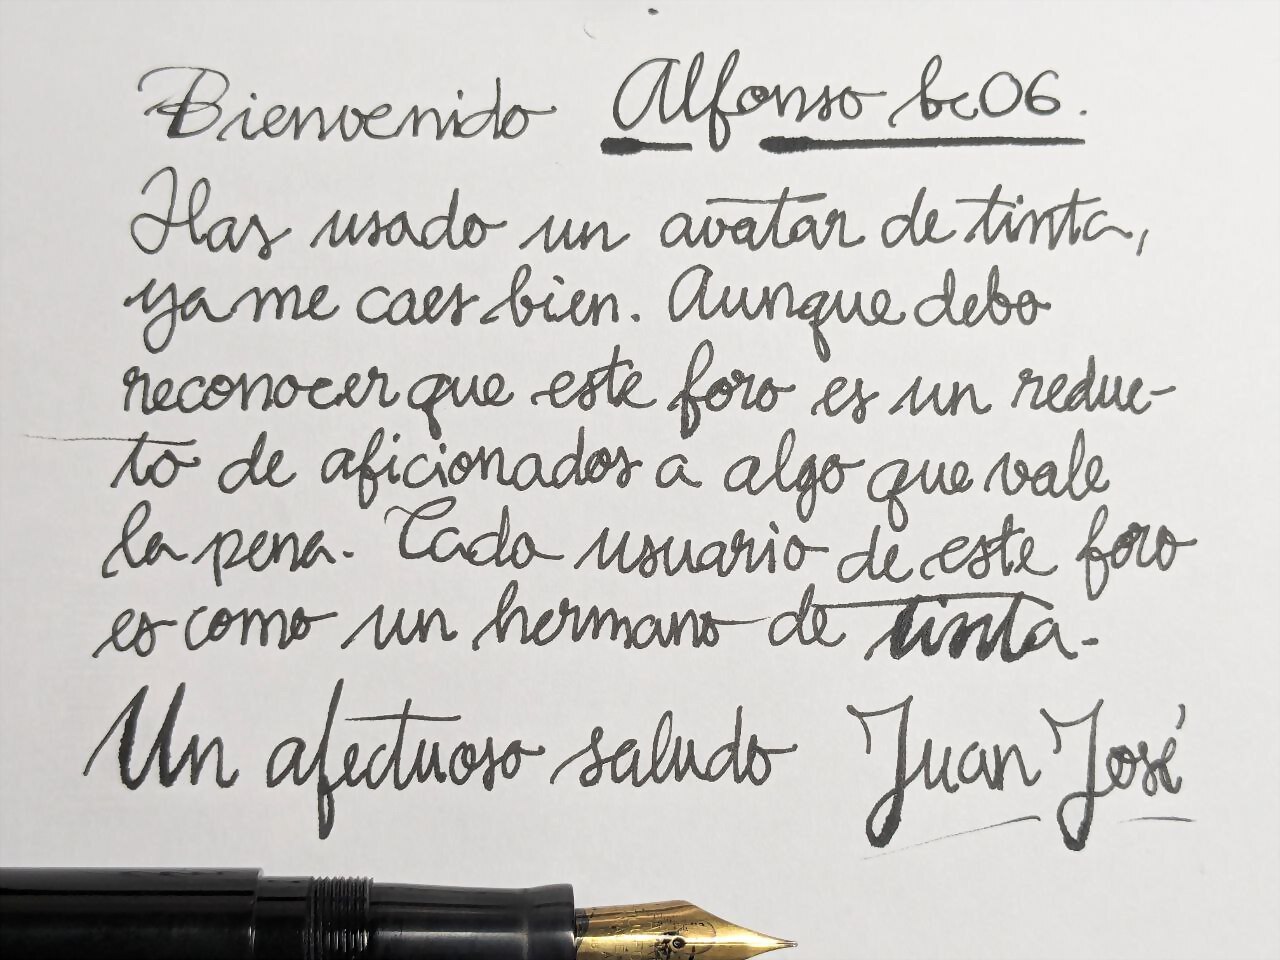 Bienvenido Alfonso bc06.
Has usado un avatar de tinta,
ya me caes bien. Aunque debo
reconocer que este foro es un reduc-
to de aficionados a algo que vale
la pena. Cada usuario de este foro
es como un hermano de tinta.
Un afectuoso saludo Juan José